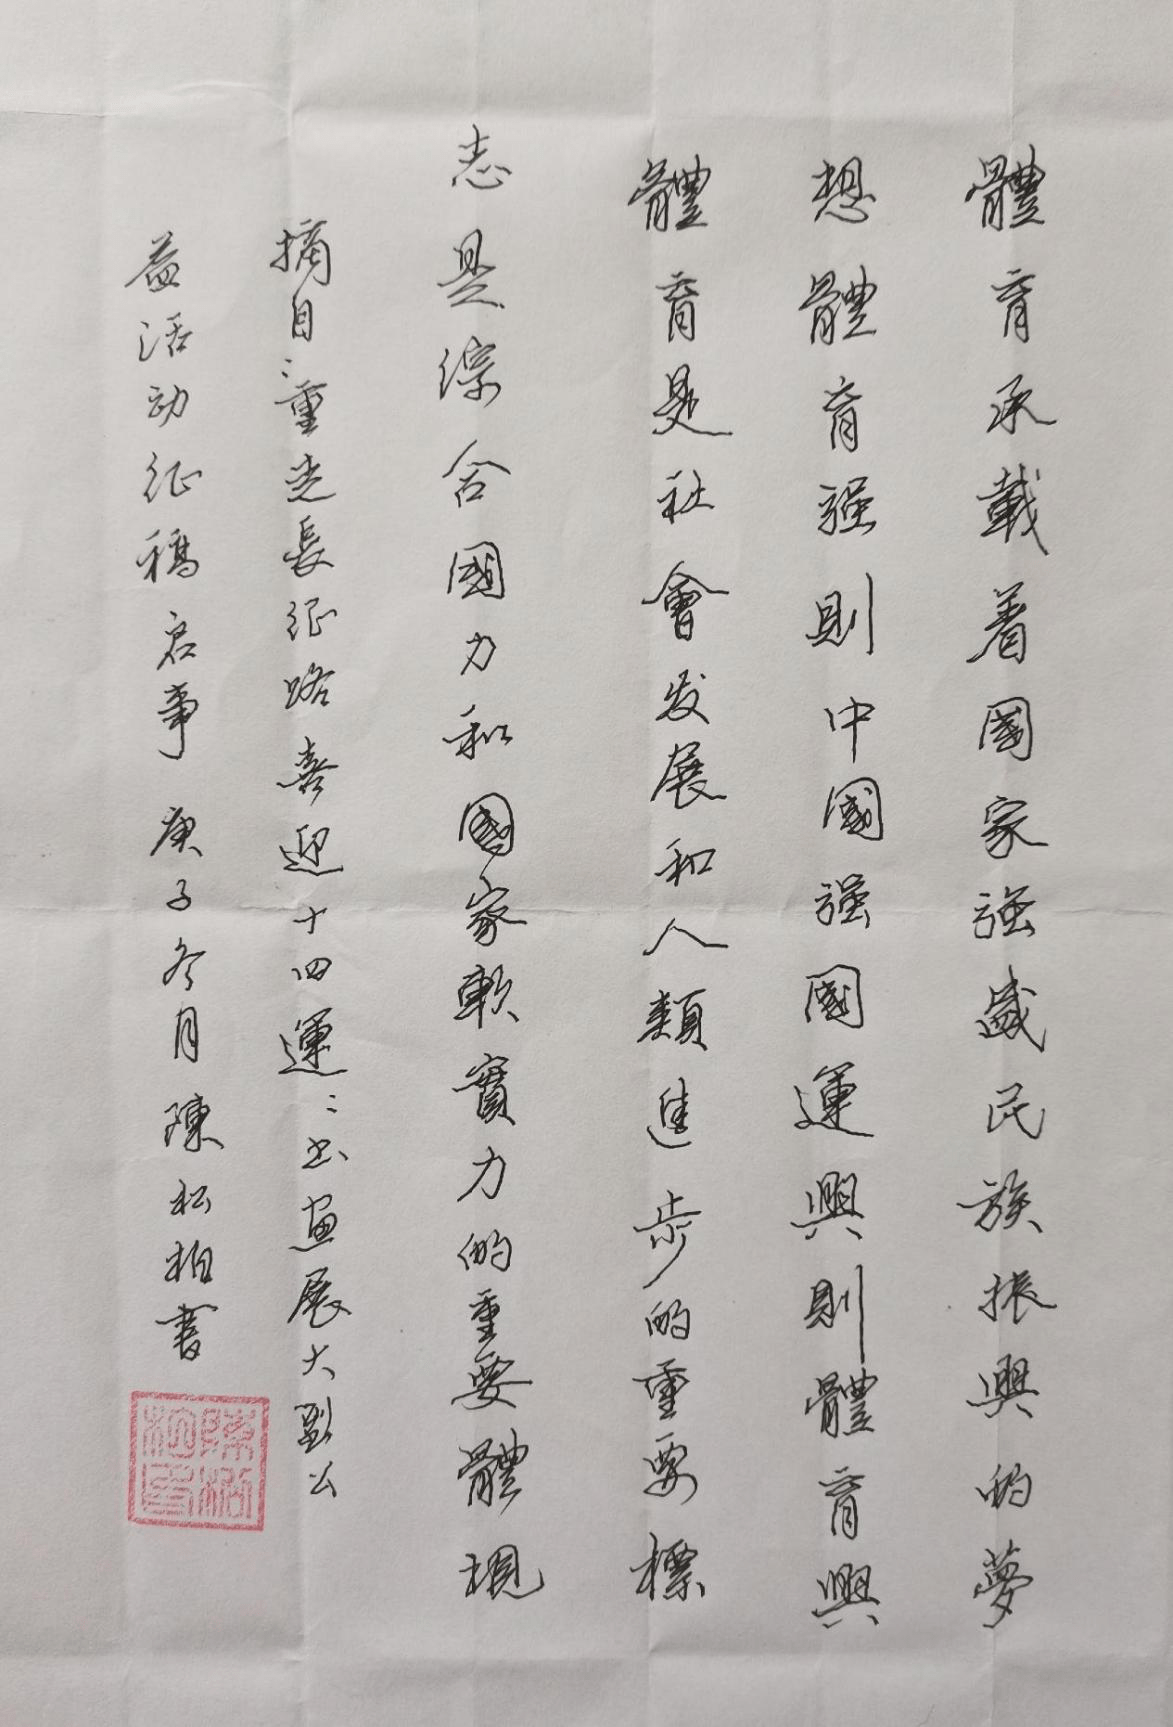 體育承載着國家强盛民族振興的夢
想體育强則中國强國運興則體育興
體育是社會发展和人類進步的重要標
志是综合國力和國家軟實力的重要體現
摘自:重走長征路喜迎十四運:书画展大型公
益活动征稿启事 庚子冬月陳松柏書